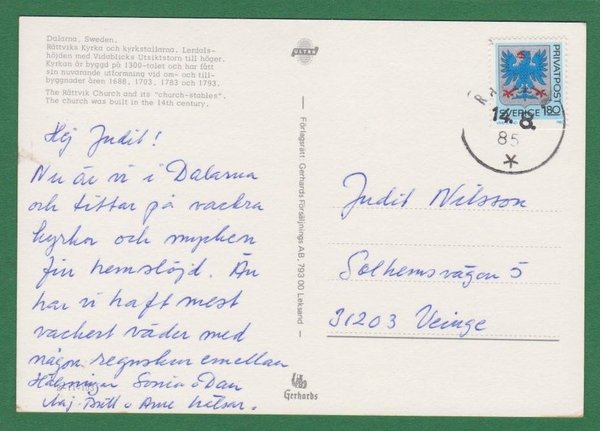 Dalarna, Sweden.
Rättviks Kyrka och kyrkstallarna. Lerdals-
höjden med Vidablicks Utsiktstorn till höger.
Kyrkan är byggd på 1300-talet och har fått
sin nuvarande utformning vid om- och till-
byggnader åren 1688, 1703, 1783 och 1793.
The Rättvik Church and its "church-stables".
The church was built in the 14th century.
Hej Judit!
Nu är vi i Dalarna
och tittar på vackra
kyrkor och mycken
fin hemslöjd. Än
har vi haft mest
vackert väder med
någon regnskur emellan
Hälsningar Sonia o Dan
Maj-Britt o Arne hälsar.
ULTRA
Förlagsrätt Gerhards Försäljnings AB, 793 00 Leksand
Gerhards
PRIVATPOST
SVERIGE 180
14.8.
85
Judit Nilsson
Solhemsvägen 5
31203 Veinge